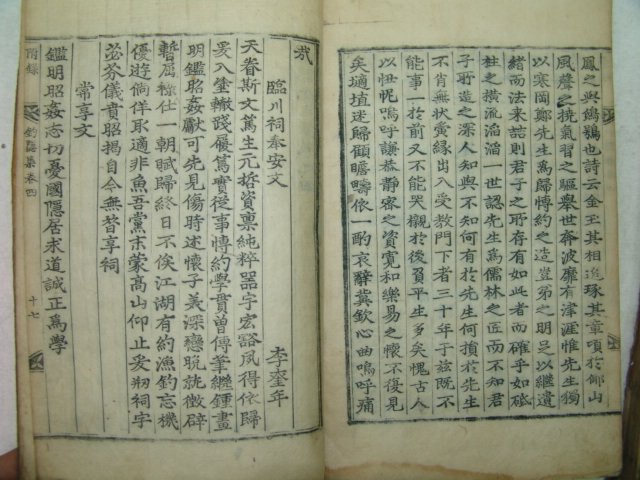 鳳之與鴟鴞也詩云金玉其相追琢其章頃於邙山
風聲之撓氣習之驅舉世奔波靡有津涯惟先生獨
以寒岡鄭先生爲歸博約之造豈弟之明足以繼遺
緖而法來詰則君子之所存有如此者而確乎如砥
柱之橫流滔滔一世認先生爲儒林之匠而不知君
子所造之深人知與不知何有於先生何損於先生
不肖無狀夤緣出入受教門下者三十年于玆旣不
能事一於前又不能哭櫬於後負平生多矣愧古人
以忸怩嗚呼謙恭靜密之資寬和樂易之懷不復見
矣擿埴迷歸顧瞻疇依一酌哀辭冀欽心曲嗚呼痛
哉
臨川祠奉安文 李奎年
天眷斯文篤生元哲資稟純粹器宇宏豁夙得依歸
爰入堂轍踐履篤實從事博約學貫曾傳筆繼鍾畫
明鑑昭姦獻可先見傷時述懷子義深戀晩就徵辟
暫屈仕一朝賦歸終日不俟江湖有約漁釣忘機
優遊徜徉取適非魚吾黨末蒙高山仰止爰刱祠宇
苾芬儀賁昭揭自今無替享祠
常享文
鑑明昭姦志切憂國隱居求道誠正爲學
附錄 釣隱集卷四 十七